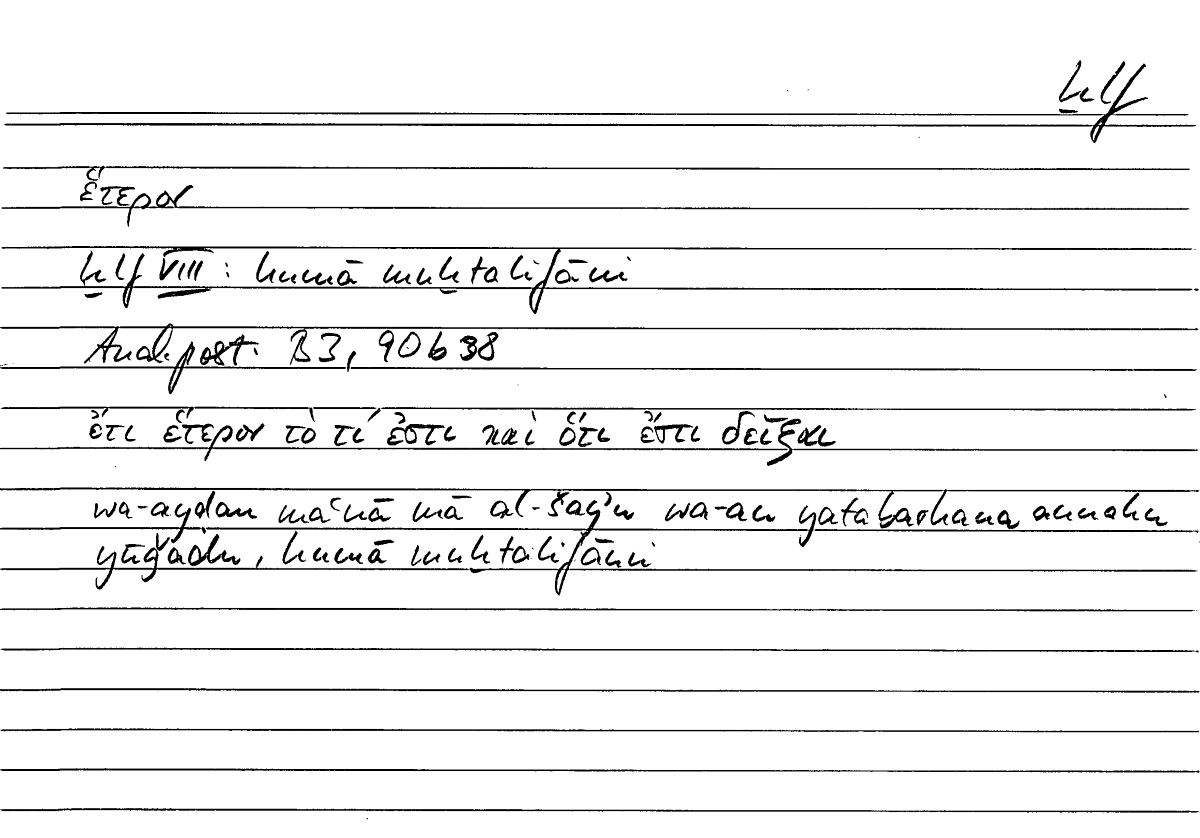 ẖlf
ἕτερον
ẖlf VIII : humā muẖtalifāni
Anal. post. B3, 90 b 38
ἔτι ἕτερον τὸ τί ἐστι καὶ ὅτι ἔστι δεῖξαι
wa-aydan maʿnā mā al-šayʾu wa-an yatabarhana annahu
yūǧadu, humā muẖtalifāni